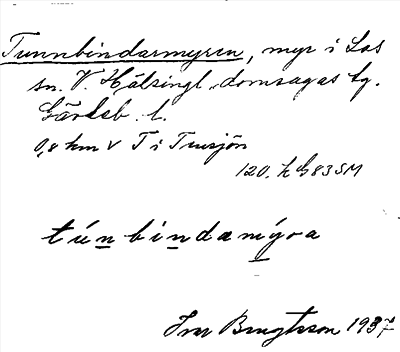 Tunnbindarmyren, myr i Los
sn. V. Hälsingl. domsagas tg.
Gävleb. l.
0,8 km V T i Tunsjön
120. h G83SM
túnbindamýra
Ivar Bengtsson 1937